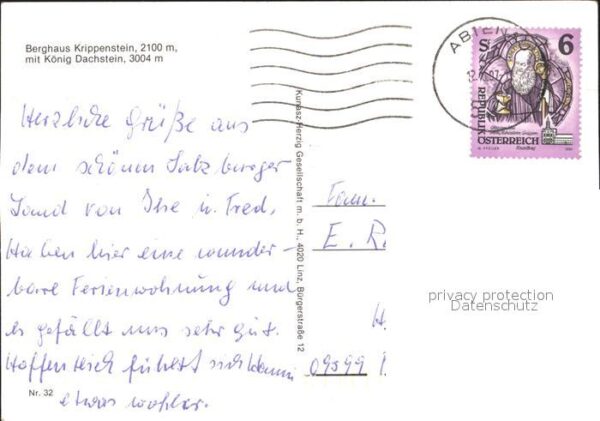 Berghaus Krippenstein, 2100 m,
mit König Dachstein, 3004 m
Herzliche Grüße aus
dem schönen Salzburger
Land von Ihr u. Fred.
Haben hier eine wunder-
bare Ferienwohnung und
es gefällt uns sehr gut.
Hoffentlich fühlst
etwas wohler.
Nr. 32
Kunasz-Herzig Gesellschaft m. b. H., 4020 Linz, Bürgerstraße 12
Fam.
E. R
H.
09599
ABTEN
6
REPUBLIK
ÖSTERREICH
privacy protection
Datenschutz